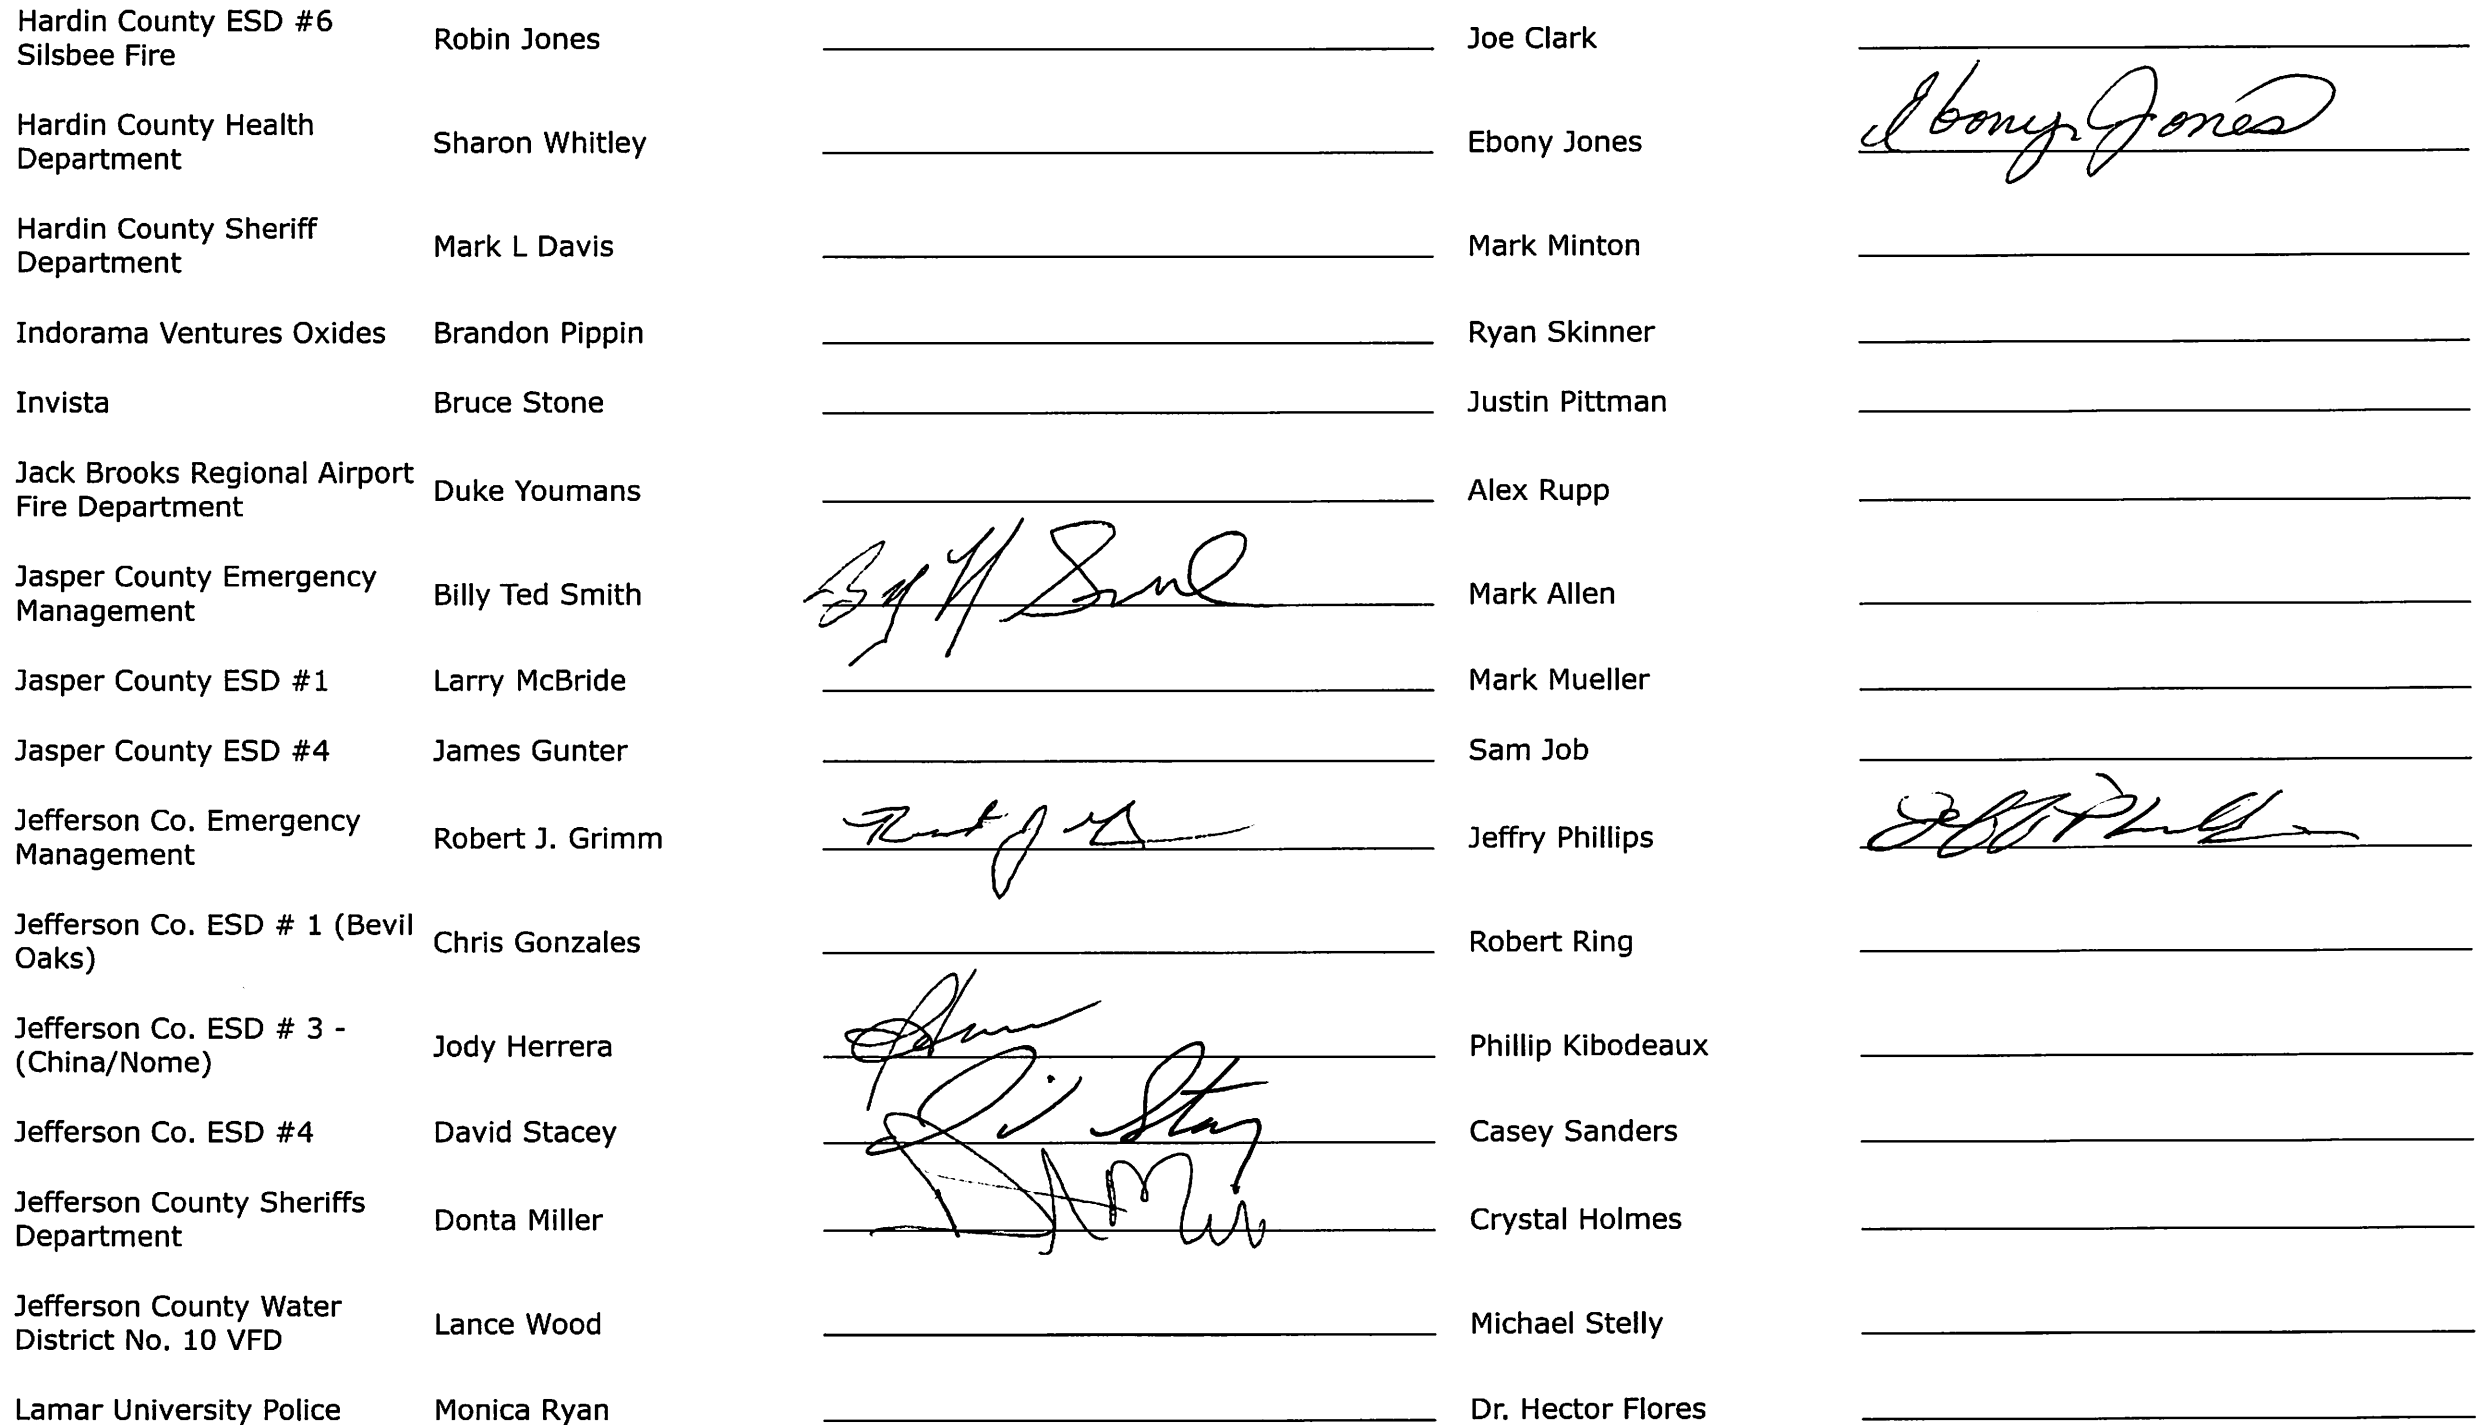 Hardin County ESD #6
Silsbee Fire
Robin Jones
Joe Clark
Hardin County Health
Department
Sharon Whitley
Ebony Jones
Ebony Jones
Hardin County Sheriff
Department
Mark L Davis
Mark Minton
Indorama Ventures Oxides
Brandon Pippin
Ryan Skinner
Invista
Bruce Stone
Justin Pittman
Jack Brooks Regional Airport
Fire Department
Duke Youmans
Alex Rupp
Jasper County Emergency
Management
Billy Ted Smith
Mark Allen
Jasper County ESD #1
Larry McBride
Mark Mueller
Jasper County ESD #4
James Gunter
Sam Job
Jefferson Co. Emergency
Management
Robert J. Grimm
Jeffry Phillips
Jefferson Co. ESD # 1 (Bevil
Oaks)
Chris Gonzales
Robert Ring
Jefferson Co. ESD # 3 -
(China/Nome)
Jody Herrera
Phillip Kibodeaux
Jefferson Co. ESD #4
David Stacey
Casey Sanders
Jefferson County Sheriffs
Department
Donta Miller
Crystal Holmes
Jefferson County Water
District No. 10 VFD
Lance Wood
Michael Stelly
Lamar University Police
Monica Ryan
Dr. Hector Flores